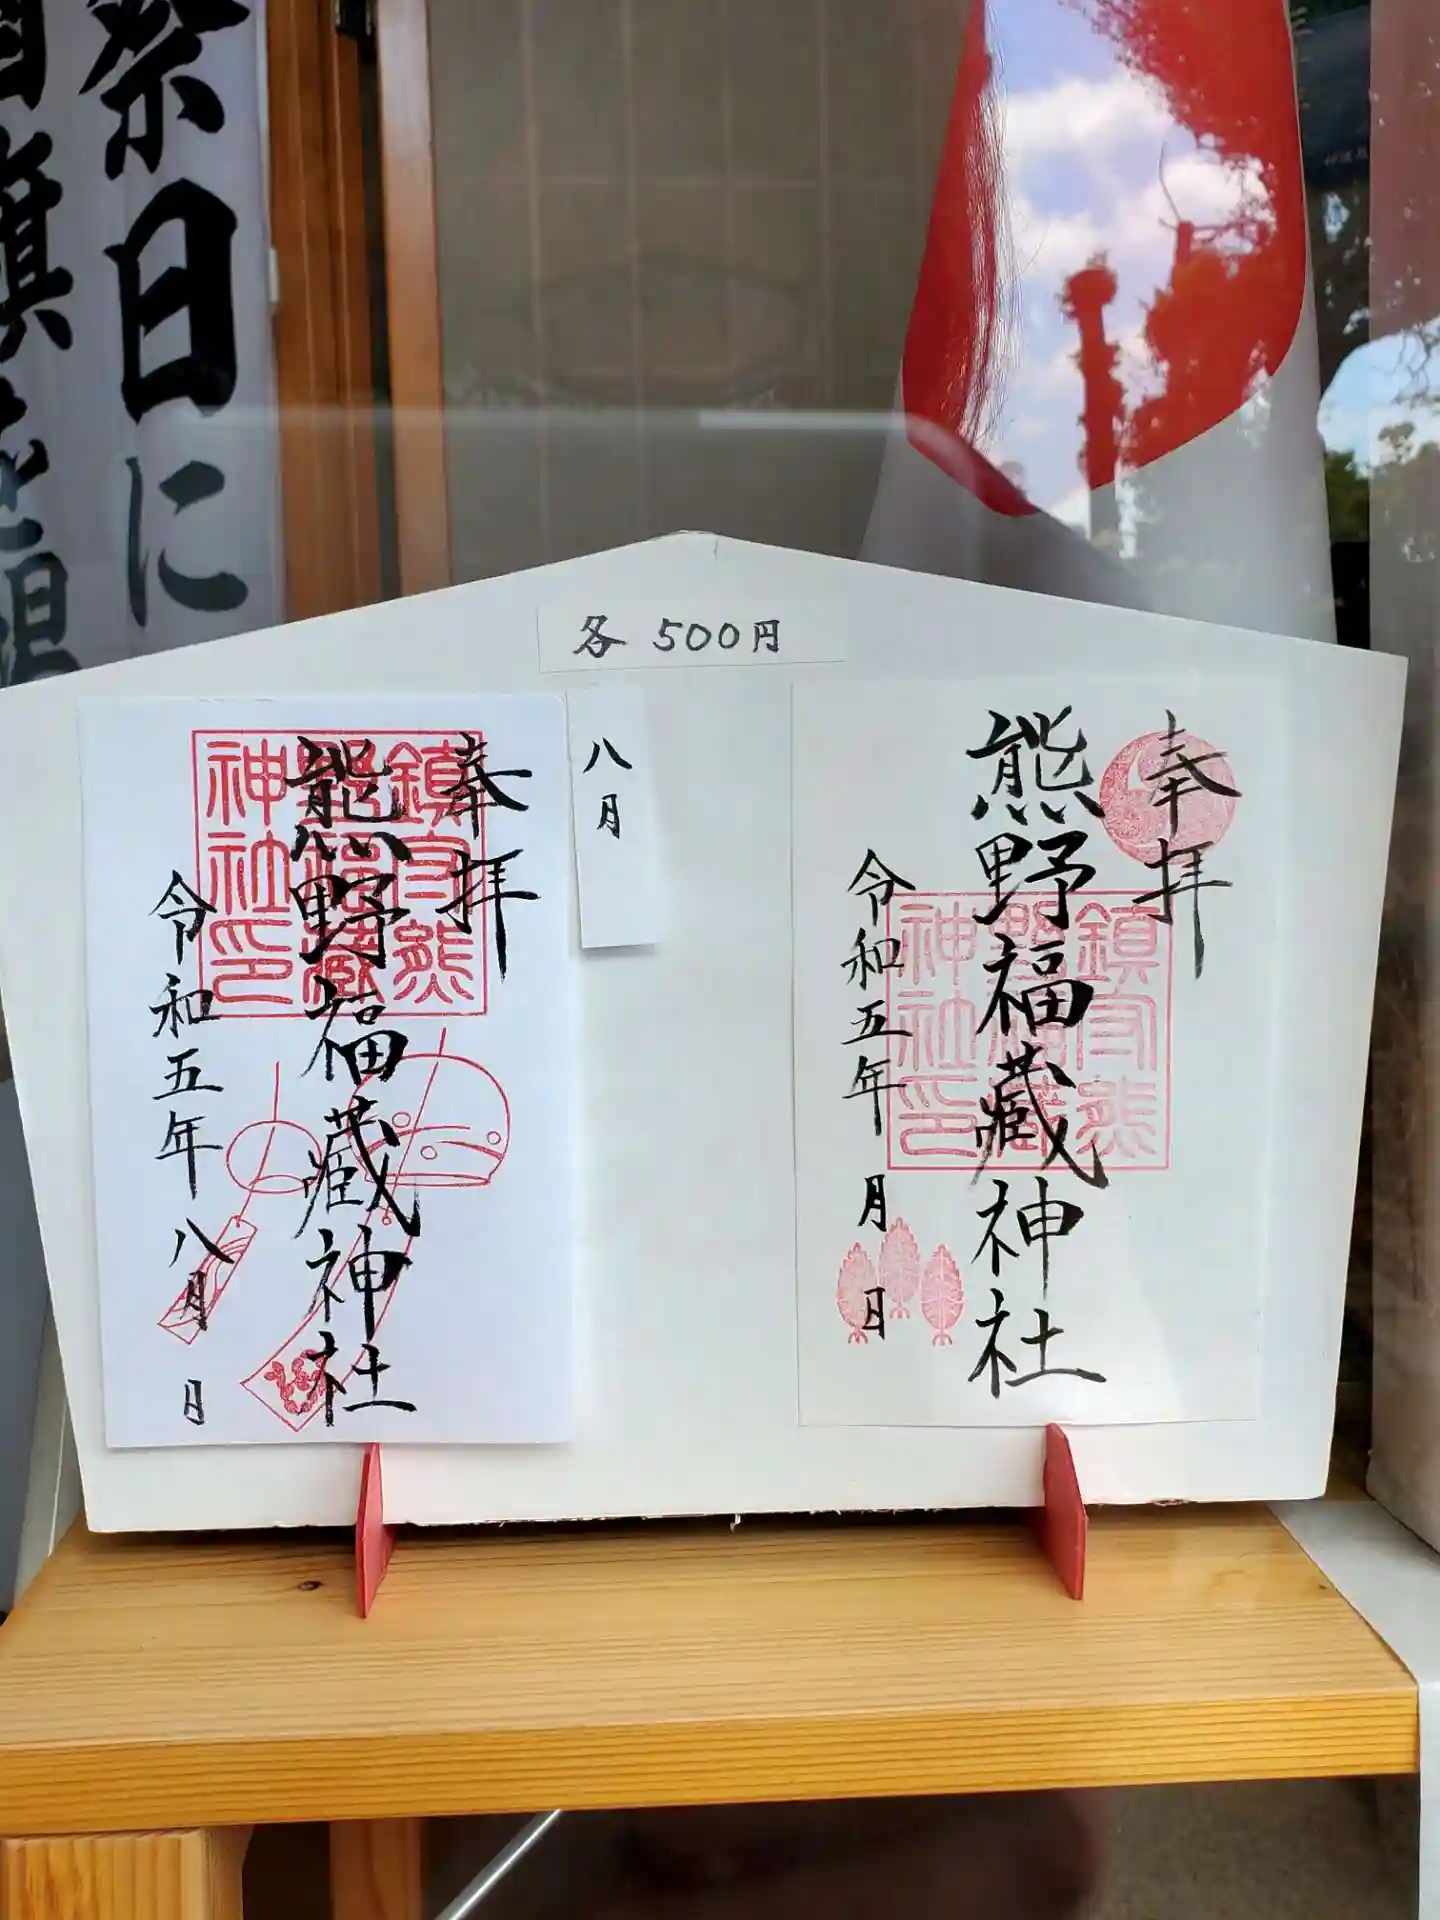 祭日に
国旗を掲
各 500円
八月
奉拝
熊野福蔵神社
令和五年 月 日
鎮守熊
野福蔵
神社印
奉拝
熊野福蔵神社
令和五年八月 日
鎮守熊
野福蔵
神社印